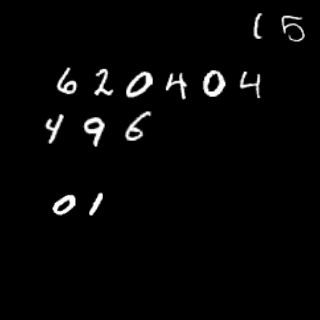 15
620404
496
01